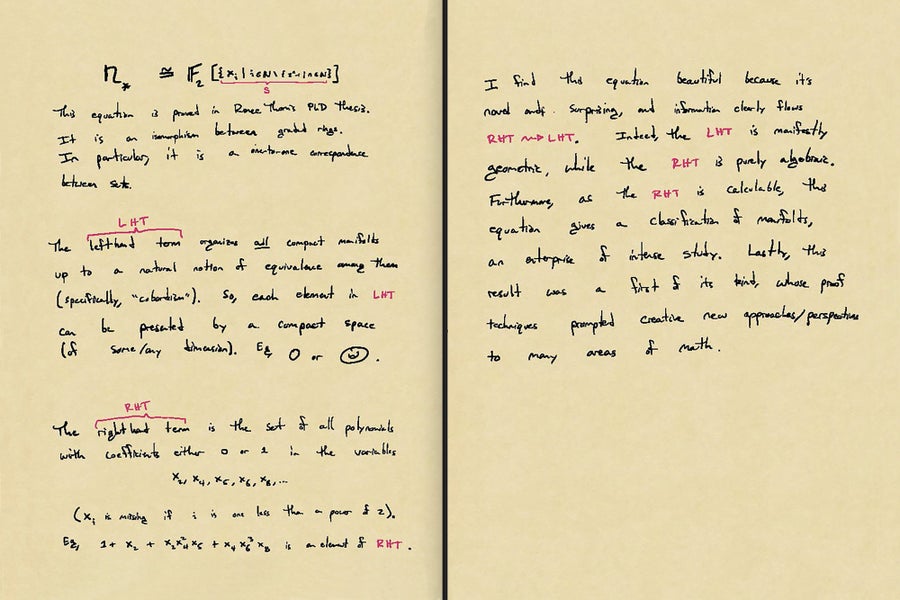 𝔑_* ≅ 𝔽₂[{x_i | i∈ℕ\{2ⁿ-1 | n∈ℕ}]
S
This equation is proved in Rene Thom's PhD thesis.
It is an isomorphism between graded rings.
In particular, it is a one-to-one correspondence
between sets.
LHT
The lefthand term organizes all compact manifolds
up to a natural notion of equivalence among them
(specifically, "cobordism"). So, each element in LHT
can be presented by a compact space
(of some/any dimension). Eg, or .
RHT
The righthand term is the set of all polynomials
with coefficients either 0 or 1 in the variables
x₂, x₄, x₅, x₆, x₈, ...
(x_i is missing if i is one less than a power of 2).
Eg, 1 + x₂ + x₂x₄²x₅ + x₄x₆³x₈ is an element of RHT.
I find this equation beautiful because it's
novel and surprising, and information clearly flows
RHT ⇝ LHT. Indeed, the LHT is manifestly
geometric, while the RHT is purely algebraic.
Furthermore, as the RHT is calculable, this
equation gives a classification of manifolds,
an enterprise of intense study. Lastly, this
result was a first of its kind, whose proof
techniques prompted creative new approaches/perspectives
to many areas of math.